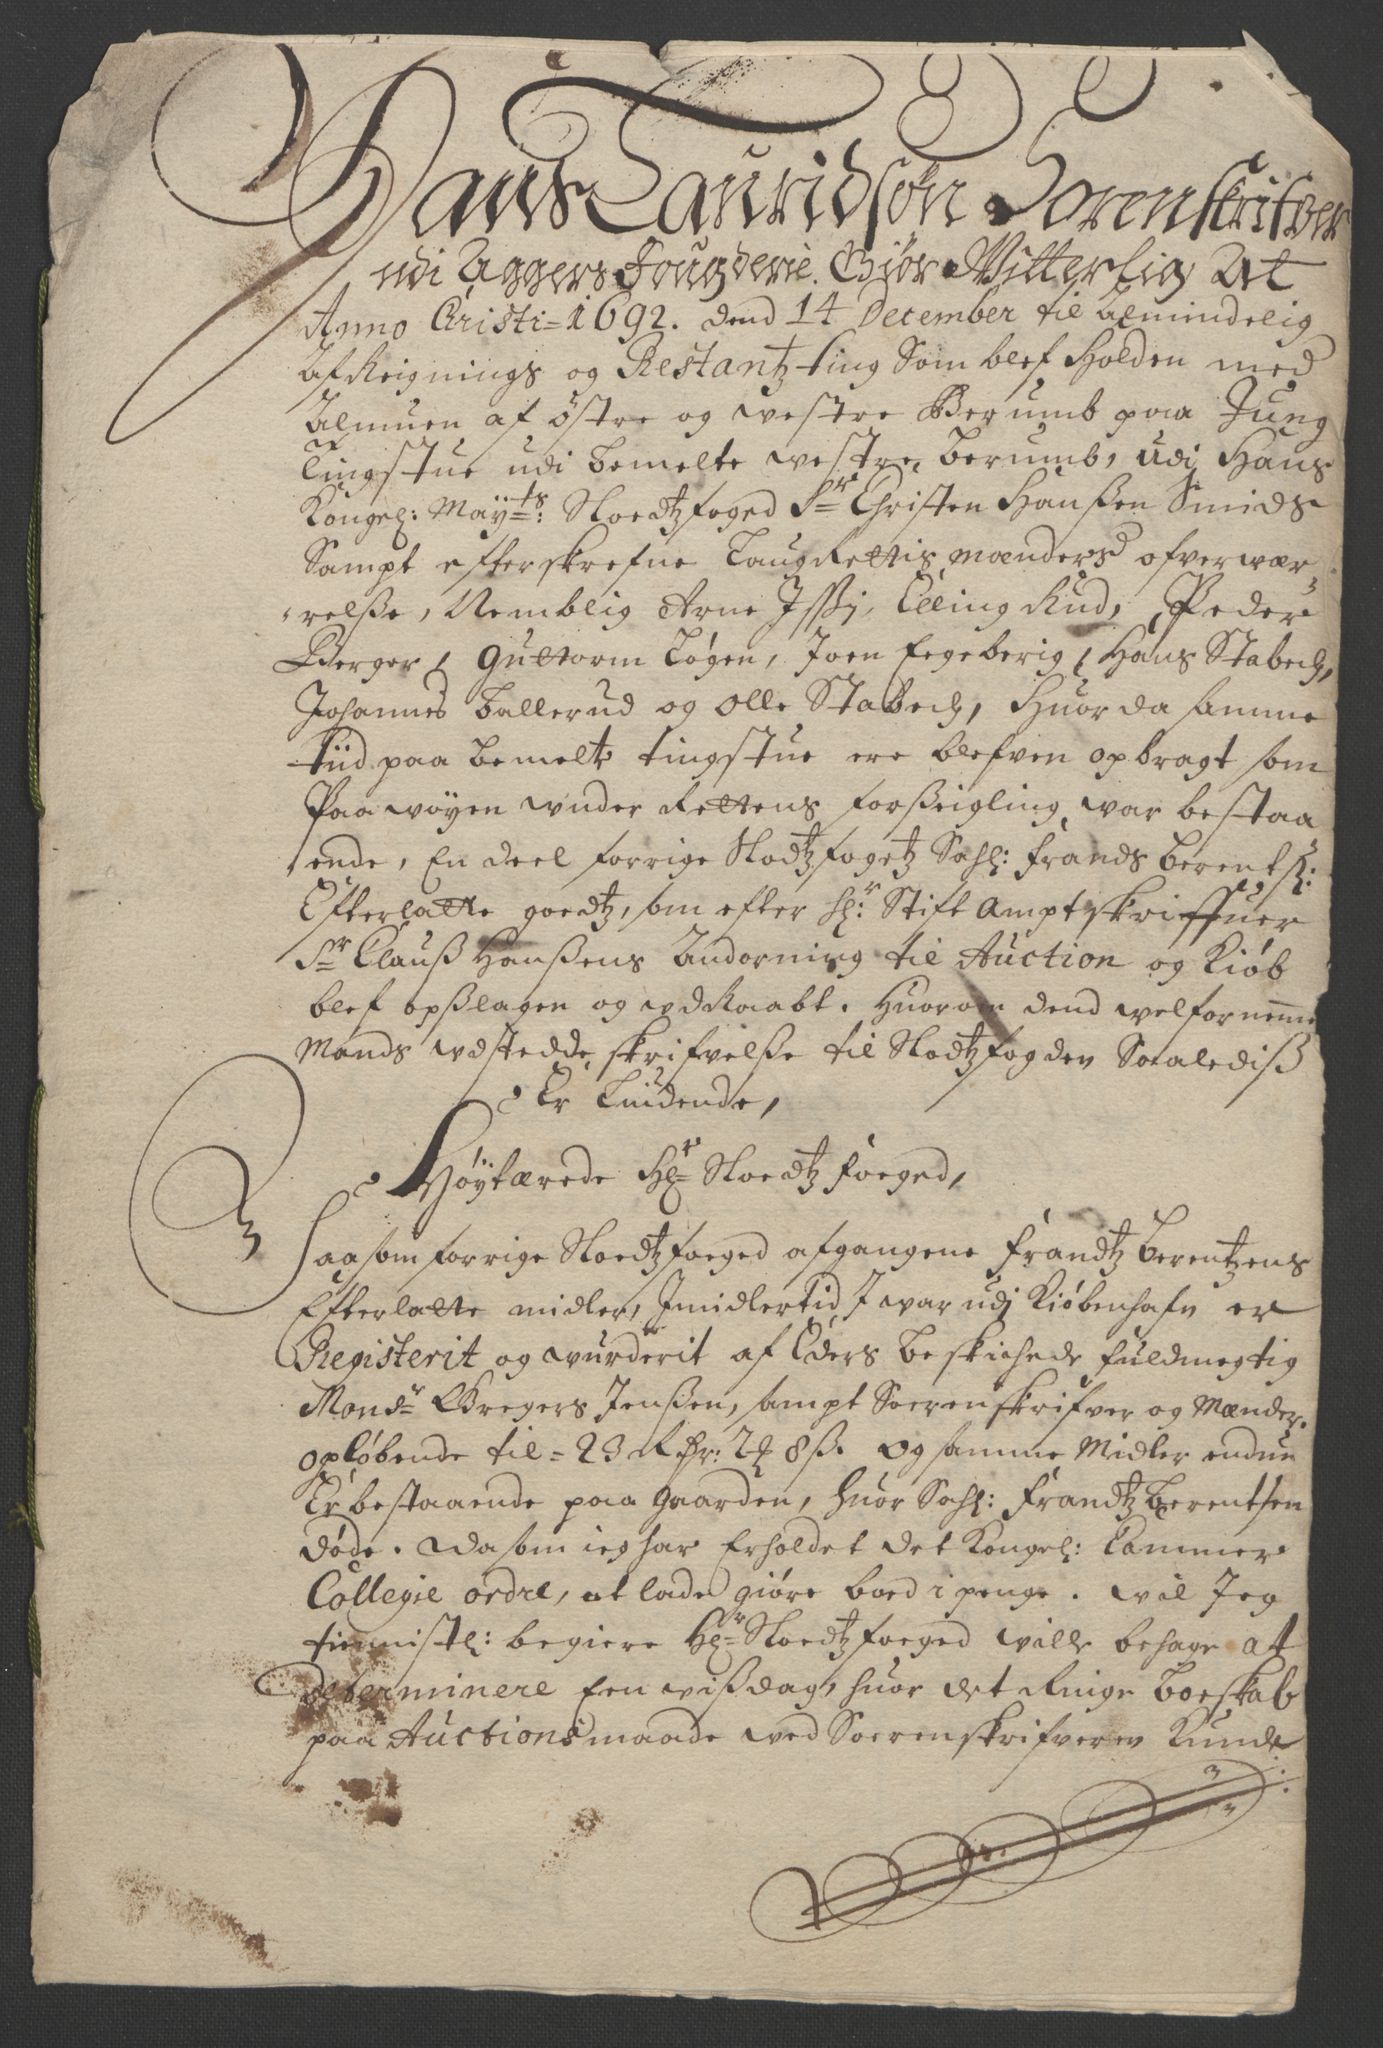 Hans Lauridsøn Sorenskrifver
udi Aggers Fougderie. Giør Witterlig At
Anno Christi = 1692. dend 14 December til Almindelig
AfReignings og Restantz ting Som blef Holden med
Almuen af østre og westre Berumb paa Jung
tingstue udi bemelte westre berumb, udi Hans
Kongel: Mayts: Sloedtzfoged Sr Christen Hanßen Smids
Sampt efterskrefne LaugRettis mænders ofverwær
relße, Nemblig Arne Jssi, Elling Rud, Peder
Berger, Guttorm Løgen, Joen Fegeberig, Hans Stabech,
Johannes Ballerud og Olle Stabech, Huor da samme
tiid paa bemelte tingstue ere blefven opbragt som
Paa wøyen wnder Rettens forßeigling war bestaa
ende, En deel forrige Slodtzfogetz Sahl: frands berentß:
Efterlatte goedtz, som efter hl:r Stift Amptskriffuer
Sr Clauß Hanßens Andorning til Auction og Kiøb
blef opßlagen og wdRaabt. Huorom dend welforneme
Mands wdstedde skrifvelße til Slodtzfogden Saalediß
Er Liudende,
Høytærede Hr Sloedtz foeged,
Saasom forrige Sloedtzfoeged afgangene frandtz berentzens
Efterlatte midler, Jmidlertid J war udj Kiøbenhafn er
Registerit og wurderit af Eders beskichede fuldmegtig
Monsr Gregers Jenßen, sampt Soerenskrifver og Mænder.
opløbende til = 23 Rdr: 2 ₰ 8 ß. og samme Midler endnu
Er bestaaende paa gaarden, huor Sahl: frandtz berentsen
døde. Da som ieg har Erholdet det Kongel: Cammer
Collegie ordre, at lade giøre boed i penge. wil Jeg
tiennistl: begiere Hr Sloedtzfoeged wille behage at
determinere Een wißdag, huor det Ringe boeskab
paa Auctions maade wed Soerenskrifveren Kunde